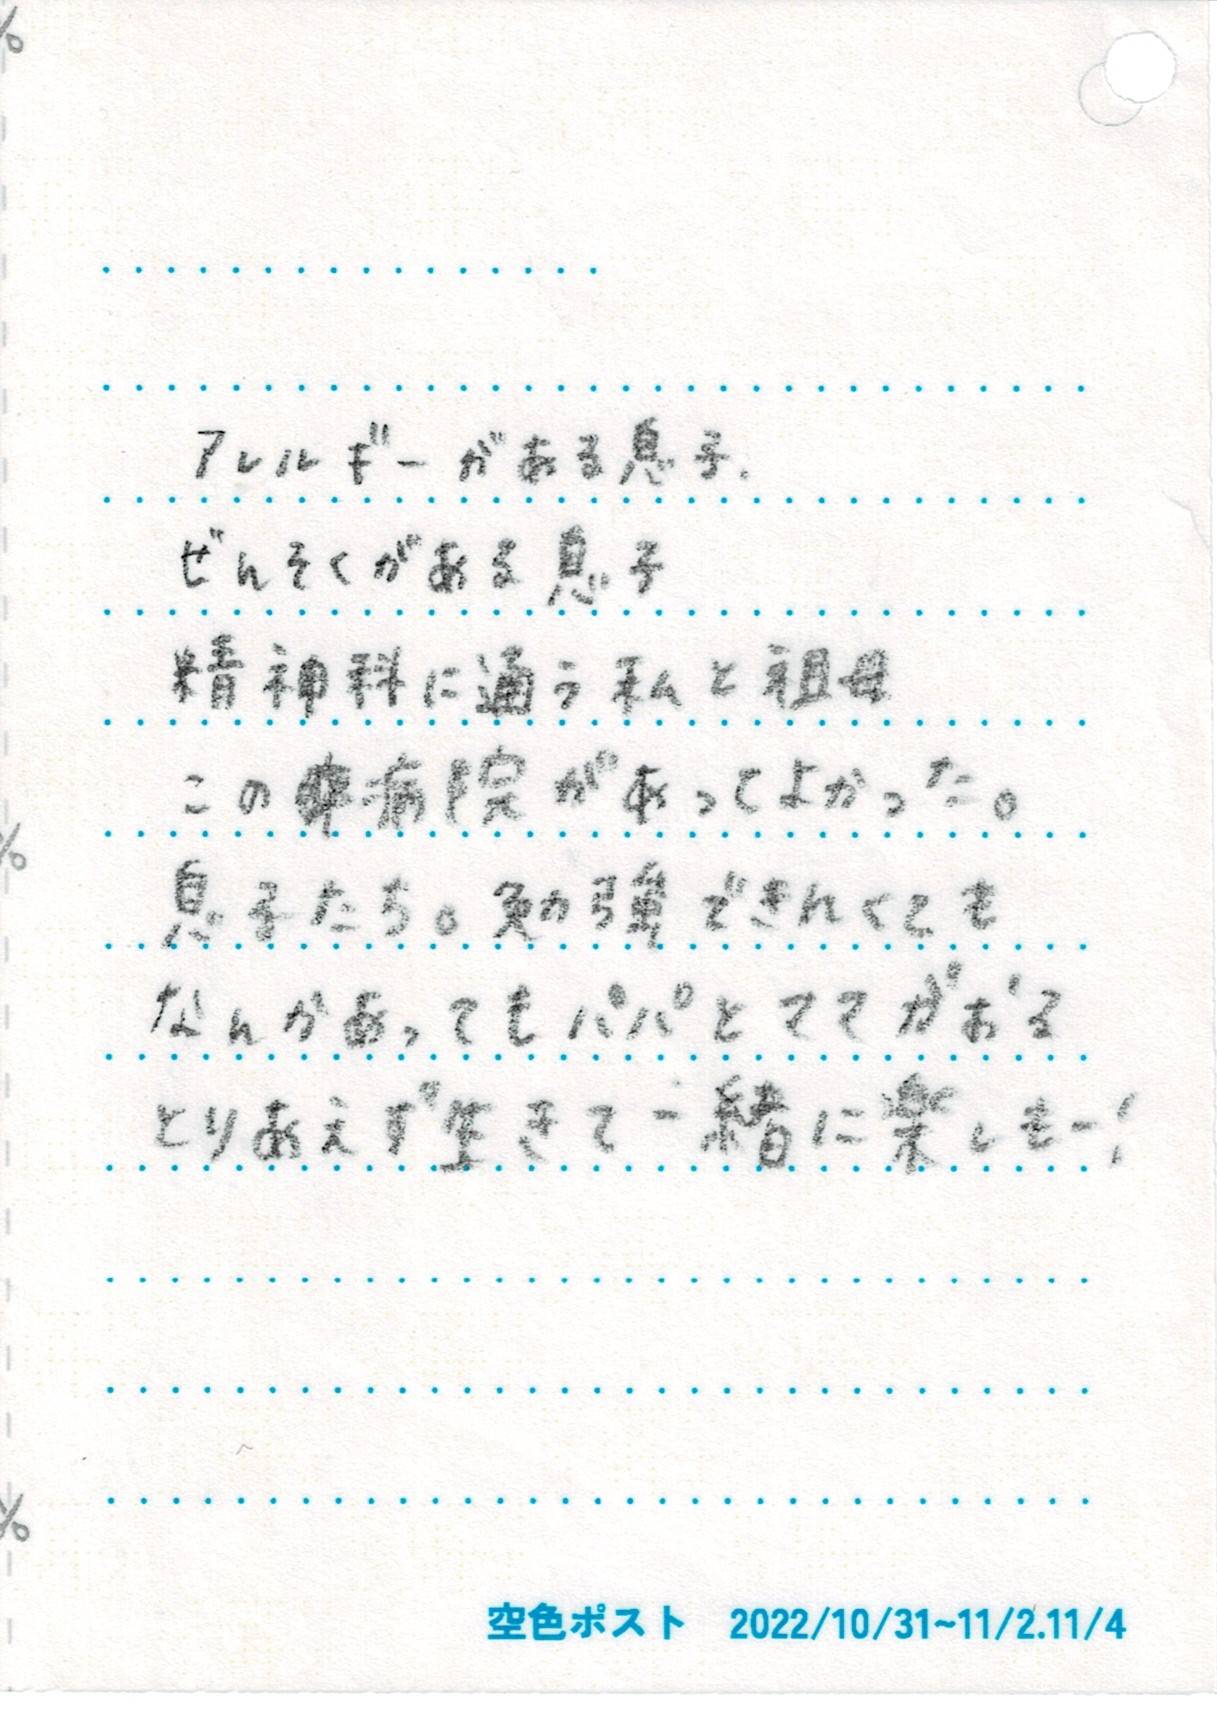 アレルギーがある息子、
ぜんそくがある息子
精神科に通う私と祖母
この病院があってよかった。
息子たち。勉強できんくても
なんかあってもパパとママがおる
とりあえず生きて一緒に楽しもー!
空色ポスト 2022/10/31~11/2.11/4